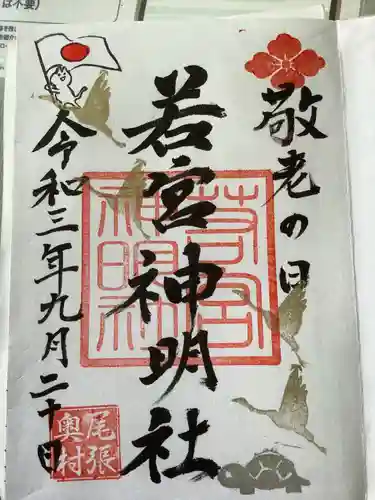 敬老の日
若宮神明社
令和三年九月二十日
若宮
神明社
尾張
奥村
は不要)